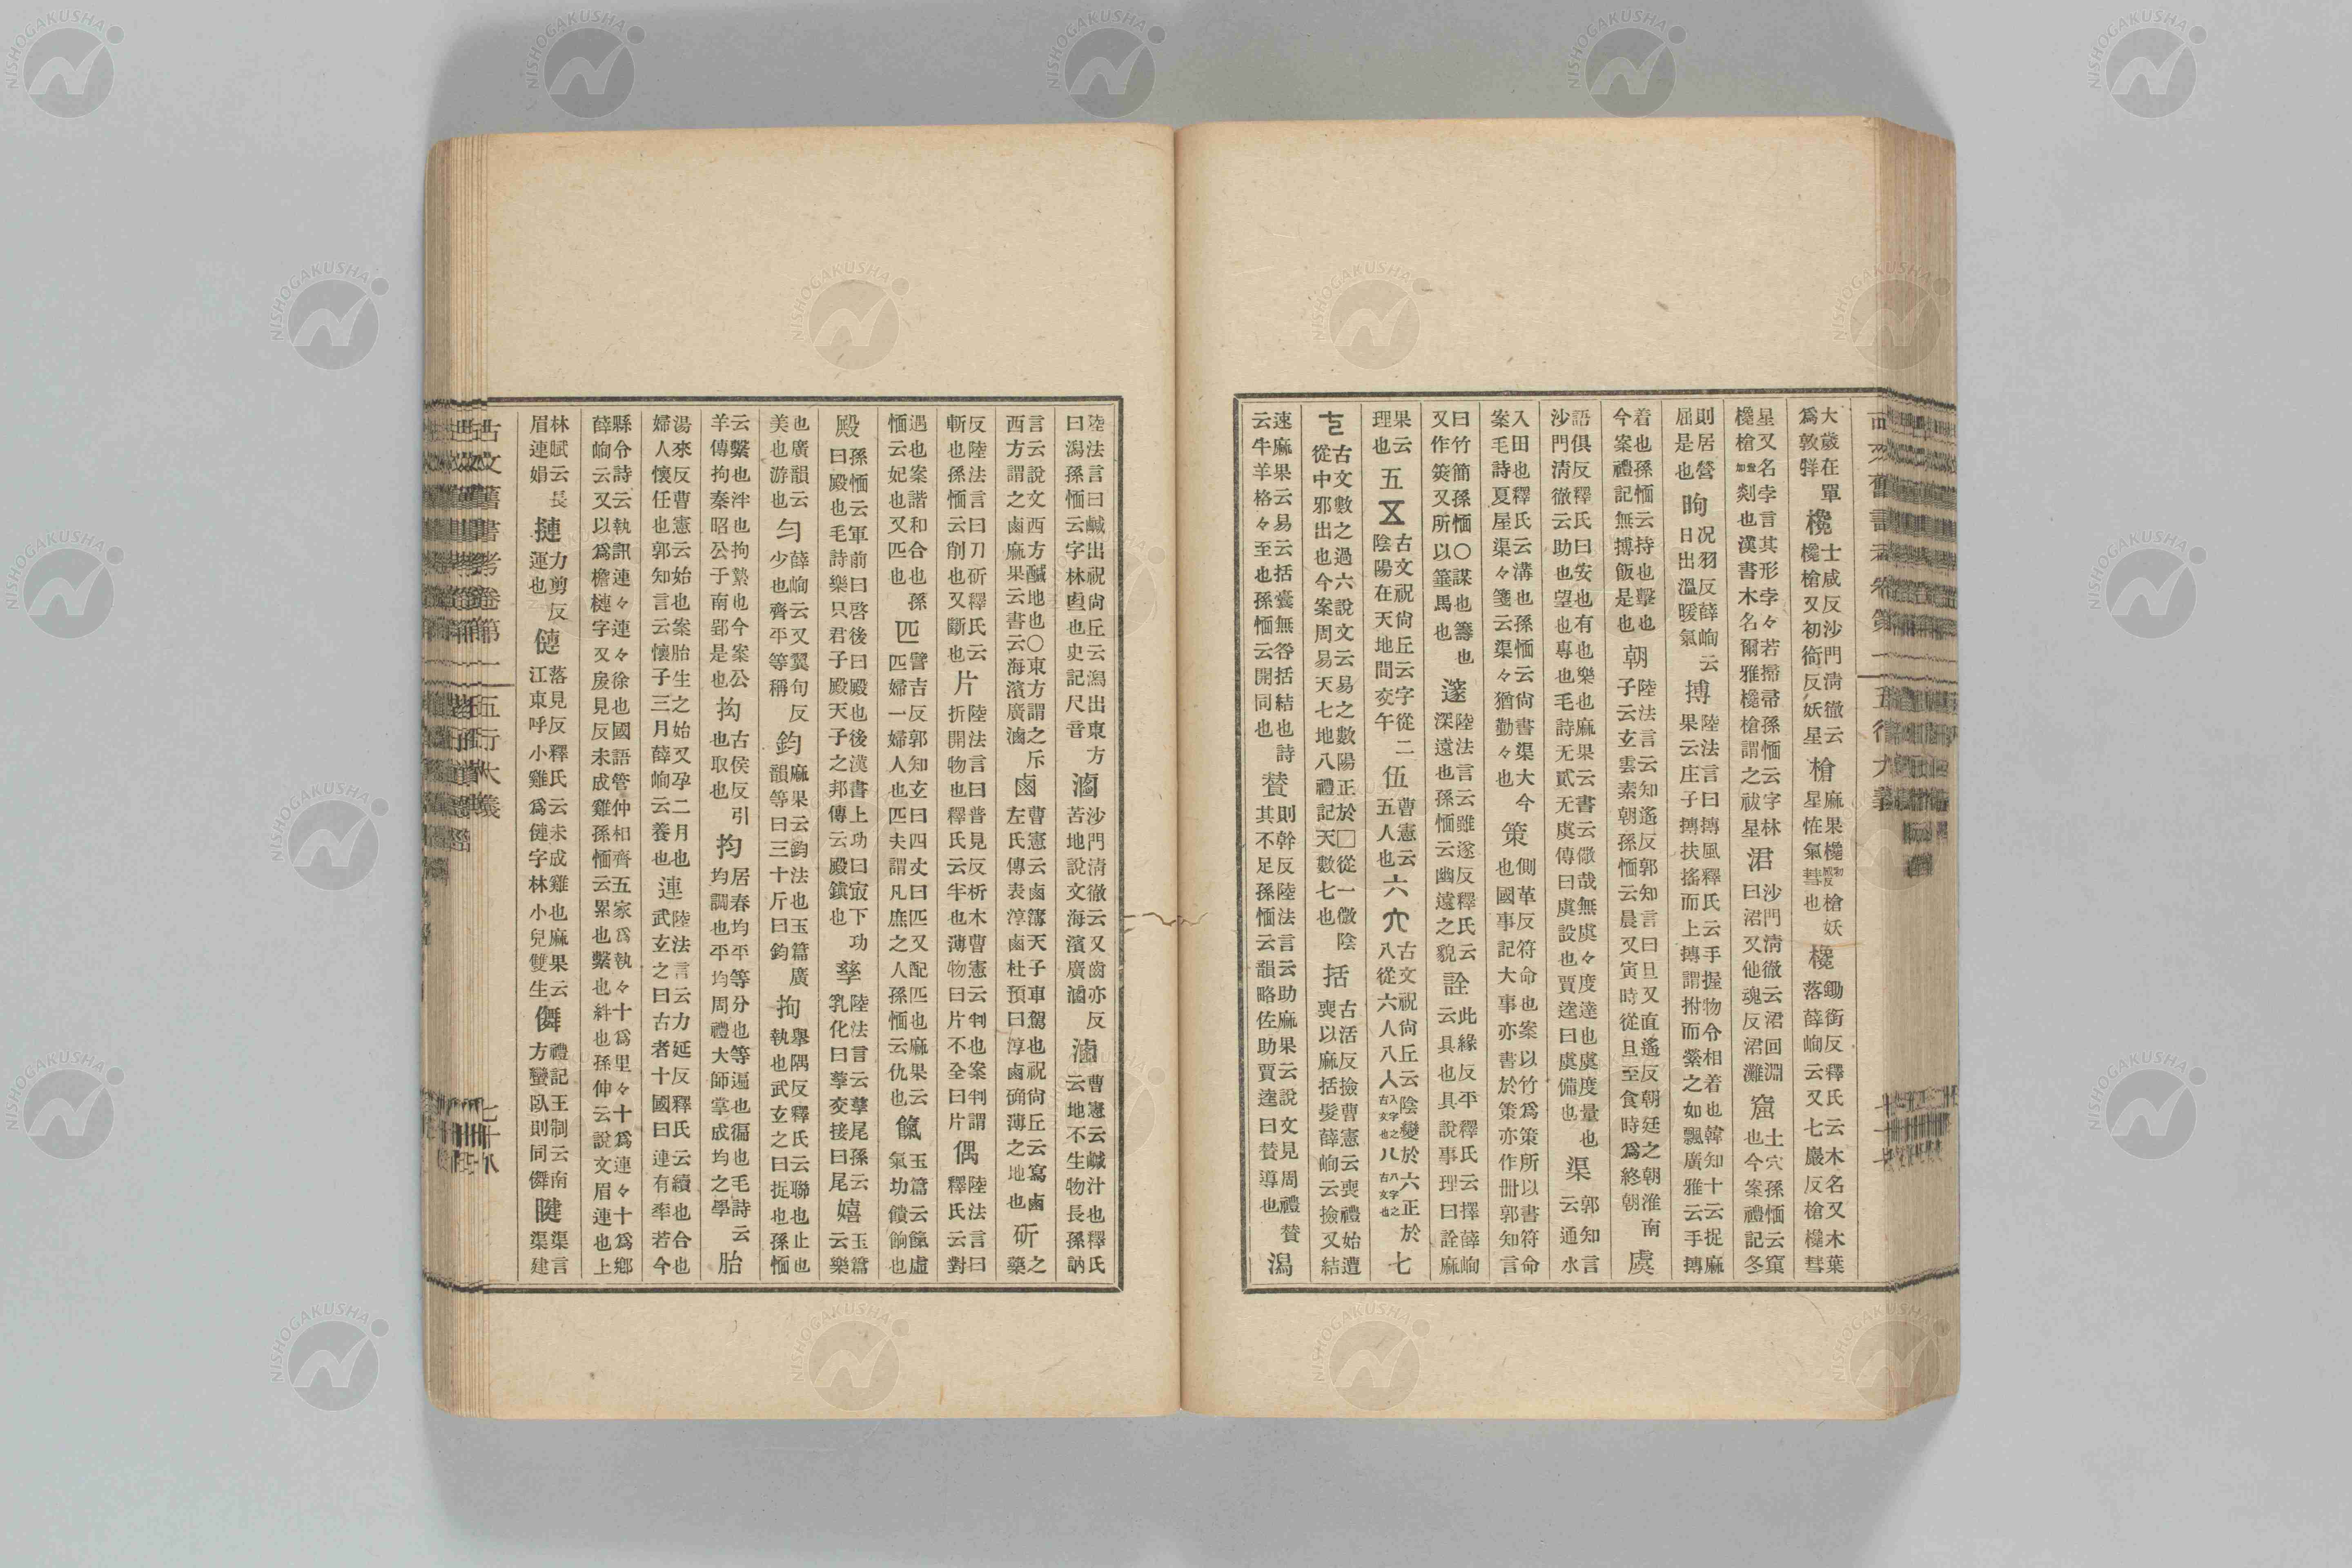 大歲在單
爲敦牂
欃
士咸反沙門淸徹云
欃槍又初銜反妖星
槍
麻果欃初咸反槍妖
星恠氣彗也
欃
鋤銜反釋氏云木名又木葉
落薛峋云又七巖反槍欃彗
星又名孛言其形孛々若掃帚孫愐云字林
欃槍如銳剡也漢書木名爾雅欃槍謂之祓星
涒
沙門淸徹云涒回淵
曰涒又他魂反涒灘
窟
土穴孫愐云窠
也今案禮記冬
則居營
屈是也
昫
况羽反薛峋云
日出溫暖氣
搏
陸法言曰搏風釋氏云手握物令相着也韓知十云捉麻
果云庄子搏扶搖而上搏謂拊而縈之如飄廣雅云手搏
着也孫愐云持也擊也
今案禮記無搏飯是也
朝
陸法言云知遙反郭知言曰旦又直遙反朝廷之朝淮南
子云玄雲素朝孫愐云晨又寅時從旦至食時爲終朝
虞
語俱反釋氏曰安也有也樂也麻果云書云儆哉無虞々度逹也虞度量也
沙門淸徹云助也望也專也毛詩无貳无虞傳曰虞設也賈逵曰虞備也
渠
郭知言
云通水
入田也釋氏云溝也孫愐云尙書渠大今
案毛詩夏屋渠々箋云渠々猶勤々也
策
側革反符命也案以竹爲策所以書符命
也國事記大事亦書於策亦作冊郭知言
曰竹簡孫愐〇謀也籌也
又作筴又所以箠馬也
邃
陸法言云雖邃反釋氏云
深遠也孫愐云幽遠之貌
詮
此緣反平釋氏云擇薛峋
云具也具說事理曰詮麻
果云
理也
五
古文祝尙丘云字從二
陰陽在天地間交午
伍
曹憲云
五人也
六
古文祝尙丘云陰變於六正於
八從六人八人入字之古文也八八字之古文也
七
古文數之過六說文云易之數陽正於囗從一微陰
從中邪出也今案周易天七地八禮記天數七也
括
古活反撿曹憲云喪禮始遭
喪以麻括髮薛峋云撿又結
速麻果云易云括囊無咎括結也詩
云牛羊格々至也孫愐云開同也
賛
則幹反陸法言云助麻果云說文見周禮賛
其不足孫愐云韻略佐助賈逵曰賛導也
潟
陸法言曰鹹出祝尙丘云潟出東方
曰潟孫愐云字林鹵也史記尺音
滷
沙門淸徹云又齒亦反
苦地說文海濱廣滷
滷
曹憲云鹹汁也釋氏
云地不生物長孫訥
言云說文西方鹹地也〇東方謂之斥
西方謂之鹵麻果云書云海濱廣滷
鹵
曹憲云鹵簿天子車駕也祝尙丘云寫鹵
左氏傳表淳鹵杜預曰淳鹵确薄之地也
斫
之
藥
反陸法言曰刀斫釋氏云
斬也孫愐云削也又斷也
片
陸法言曰普見反析木曹憲云判也案判謂
折開物也釋氏云半也薄物曰片不全曰片
偶
陸法言曰
釋氏云對
遇也案諧和合也孫
愐云妃也又匹也
匹
譬吉反郭知玄曰四丈曰匹又配匹也麻果云
匹婦一婦人也匹夫謂凡庶之人孫愐云仇也
餼
玉篇云餼虛
氣功饋餉也
殿
孫愐云軍前曰啓後曰殿也後漢書上功曰㝡下功
曰殿也毛詩樂只君子殿天子之邦傳云殿鎭也
孳
陸法言云孳尾孫云
乳化曰孳交接曰尾
嬉
玉篇
云樂
也廣韻云
美也游也
勻
薛峋云又翼句反
少也齊平等稱
鈞
麻果云鈞法也玉篇廣
韻等曰三十斤曰鈞
拘
擧隅反釋氏云聯也止也
執也武玄之曰捉也孫愐
云繫也泮也拘縶也今案公
羊傳拘秦昭公于南郢是也
拘
古侯反引
也取也
均
居春均平等分也等遍也徧也毛詩云
均調也平均周禮大師掌成均之學
胎
湯來反曹憲云始也案胎生之始又孕二月也
婦人懷任也郭知言云懷子三月薛峋云養也
連
陸法言云力延反釋氏云續也合也
武玄之曰古者十國曰連有率若今
縣令詩云執訊連々連々徐也國語管仲相齊五家爲執々十爲里々十爲連々十爲鄕
薛峋云又以爲檐槤字又㡿見反未成雞孫愐云累也繫也紏也孫伸云說文眉連也上
林賦云長
眉連娟
摙
力剪反
運也
僆
落見反釋氏云未成雞也麻果云
江東呼小雞爲僆字林小兒雙生
僻
禮記王制云南
方蠻臥則同僻
腱
渠言
渠建
古文舊書考卷第一
五行大義
七十八